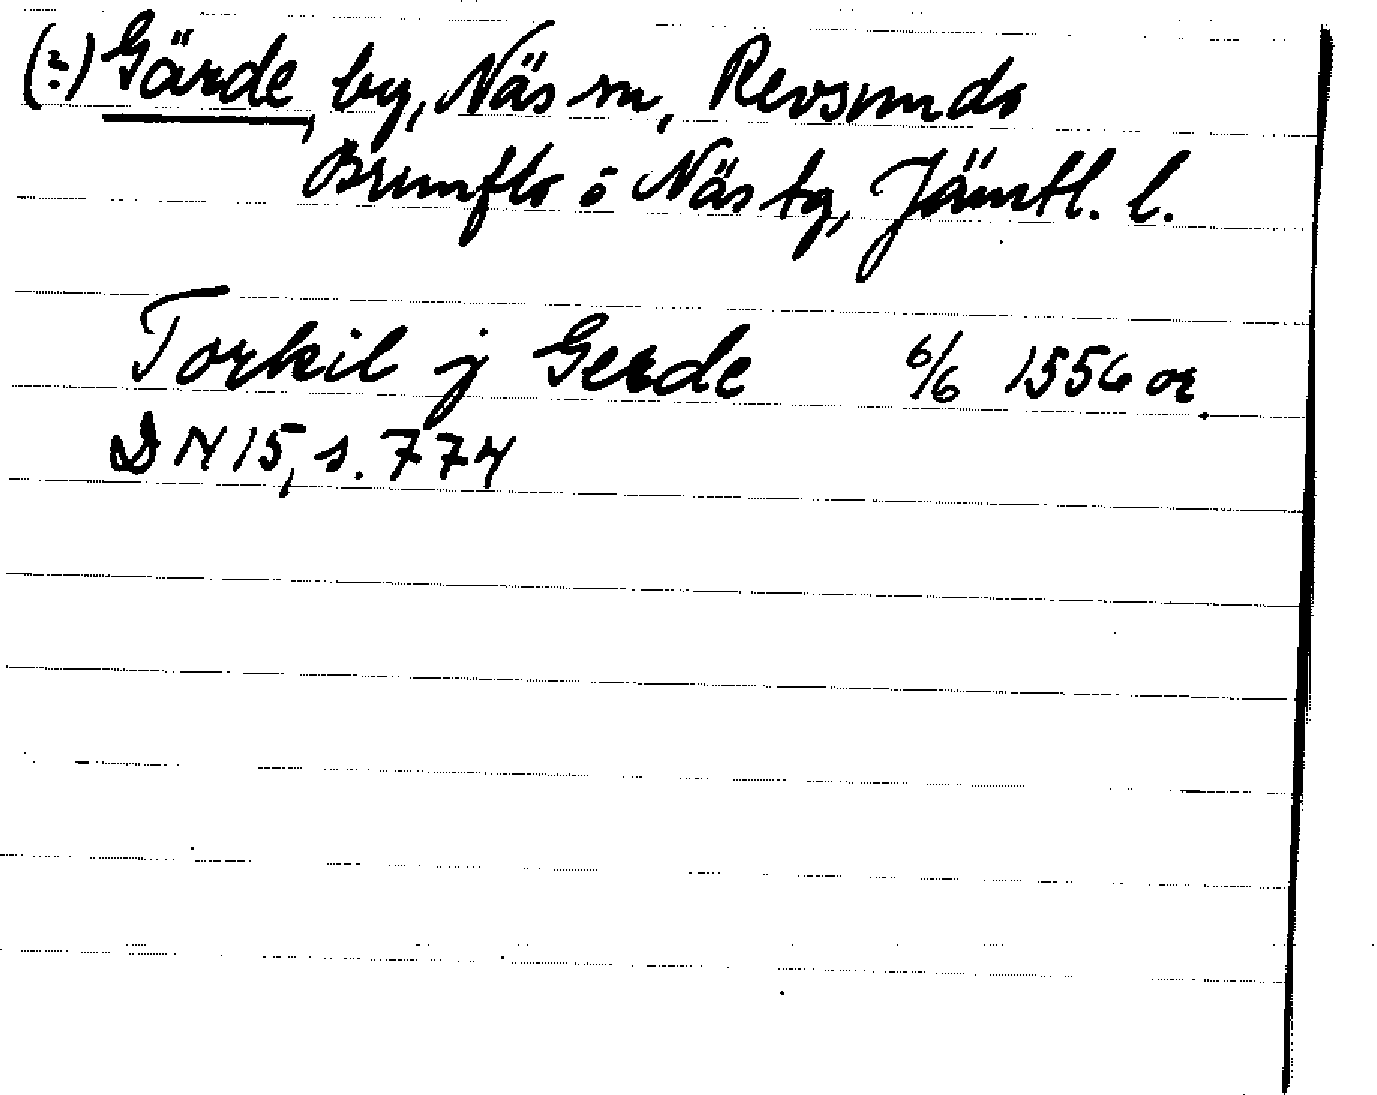 (?) Gärde, by, Näs sn, Revsunds
Brunflo o Näs tg, Jämtl. l.
Torkil j Gerde 6/6 1556 or.
DN 15, s. 774